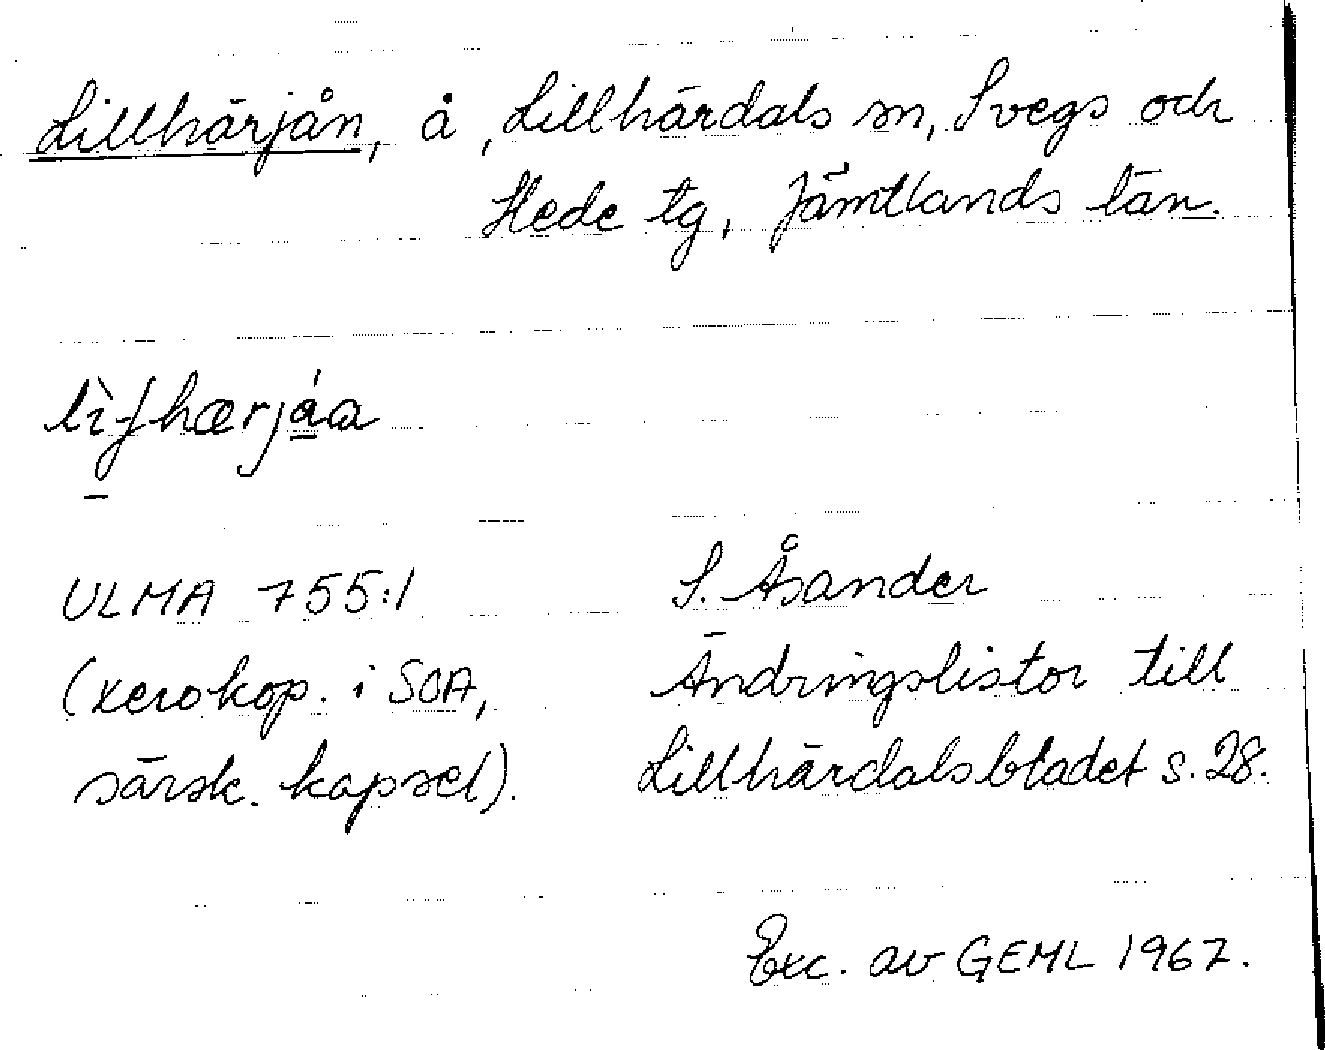 Lillhärjån, å, Lillhärdals sn, Svegs och
Hede tg, Jämtlands län.
lìʃhærjáa
ULMA 755:1 S. Åsander
(xerokop. i SOA, Ändringslistor till
särsk. kapsel). Lillhärdalsbladet s. 28.
Exc. av GEML 1967.